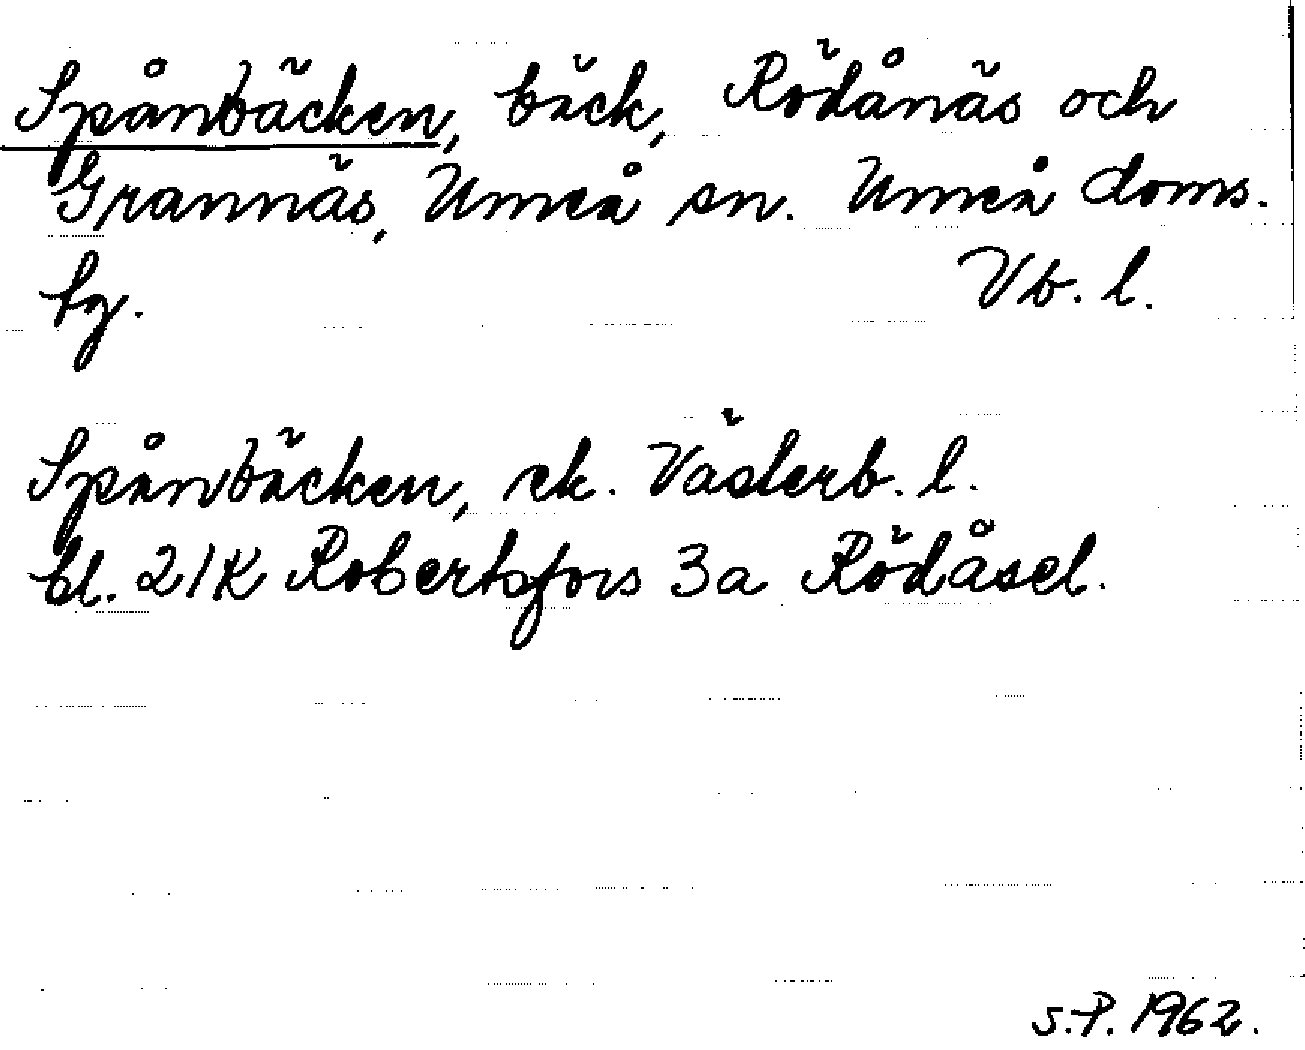 Spånbäcken, bäck, Rödånäs och
Grannäs, Umeå sn. Umeå doms.
hg. Vb. l.
Spånbäcken, ek. Västerb. l.
bl. 21K Robertsfors 3a Rödåsel.
S.P. 1962.